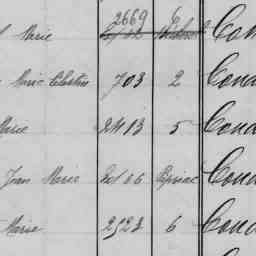 Marie 2669 6 Con
Marie Célestin 703 2 Cond
Marie 2413 5 Cond
Jean Marie Cond
Marie 2523 6 Cond